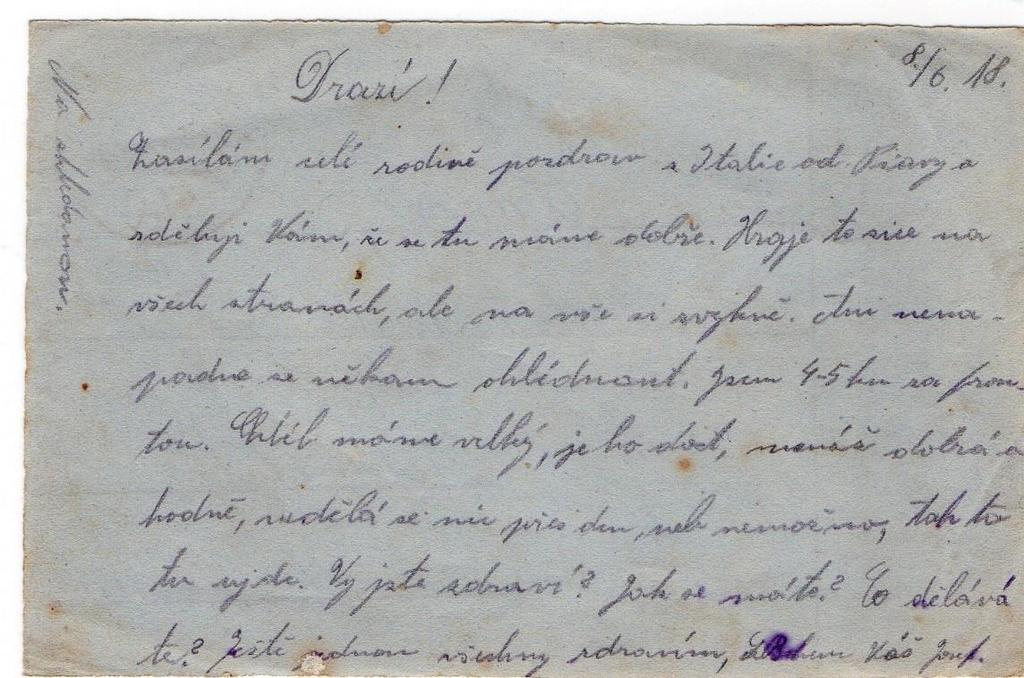 8./6. 18.
Drazí!
Zasílám celé rodině pozdrav z Italie od Piavy a
sděluji Vám, že se tu máme dobře. Hraje to sice na
všech stranách, ale na vše si zvykně. Ani nena-
padne se někam ohlédnout. Jsem 4-5 km za fron-
tou. Chléb máme velký, je ho dost, menáž dobrá a
hodně, nedělá se nic přes den, neb nemožno, tak to
tu ujde. Vy jste zdraví? Jak se máte? Co dělává
te? Ještě jednou všechny zdravím, Váš Josef.
Na shledanou.